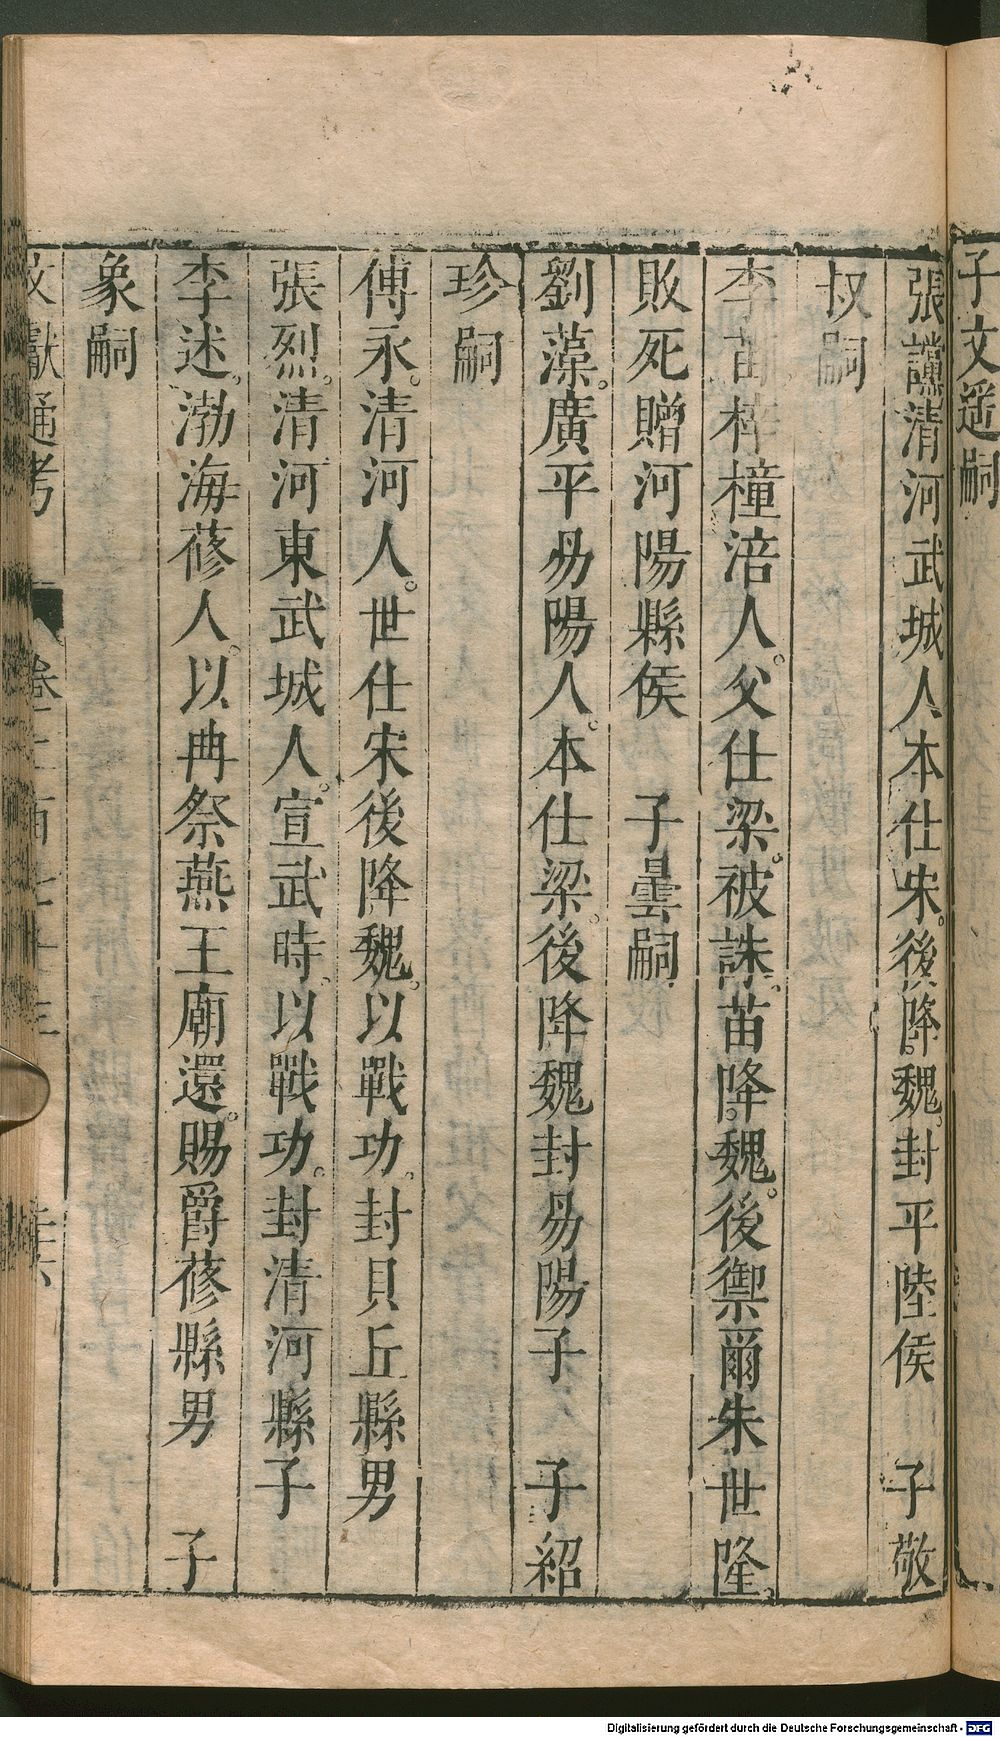 子文遥嗣
張讜清河武城人本仕宋。後降魏。封平陸侯　子敬
叔嗣
李苗梓橦涪人。父仕梁。被誅。苗降魏。後禦爾朱世隆。
敗死贈河陽縣侯　子曇嗣
劉藻。廣平昜陽人。本仕梁。後降魏封昜陽子　子紹
珍嗣
傅永。清河人。世仕宋後降魏。以戰功。封貝丘縣男
張烈。清河東武城人。宣武時。以戰功。封清河縣子
李述。渤海蓚人。以冉祭燕王廟還。賜爵蓚縣男　子
象嗣
文獻通考　卷二百七十三
Digitalisierung gefördert durch die Deutsche Forschungsgemeinschaft - DFG